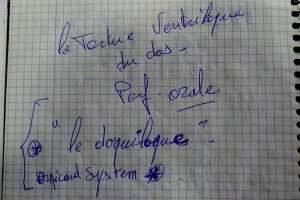 la Tortue Ventriloque
du dos -
Perf. orale
" le doquiloque "
System